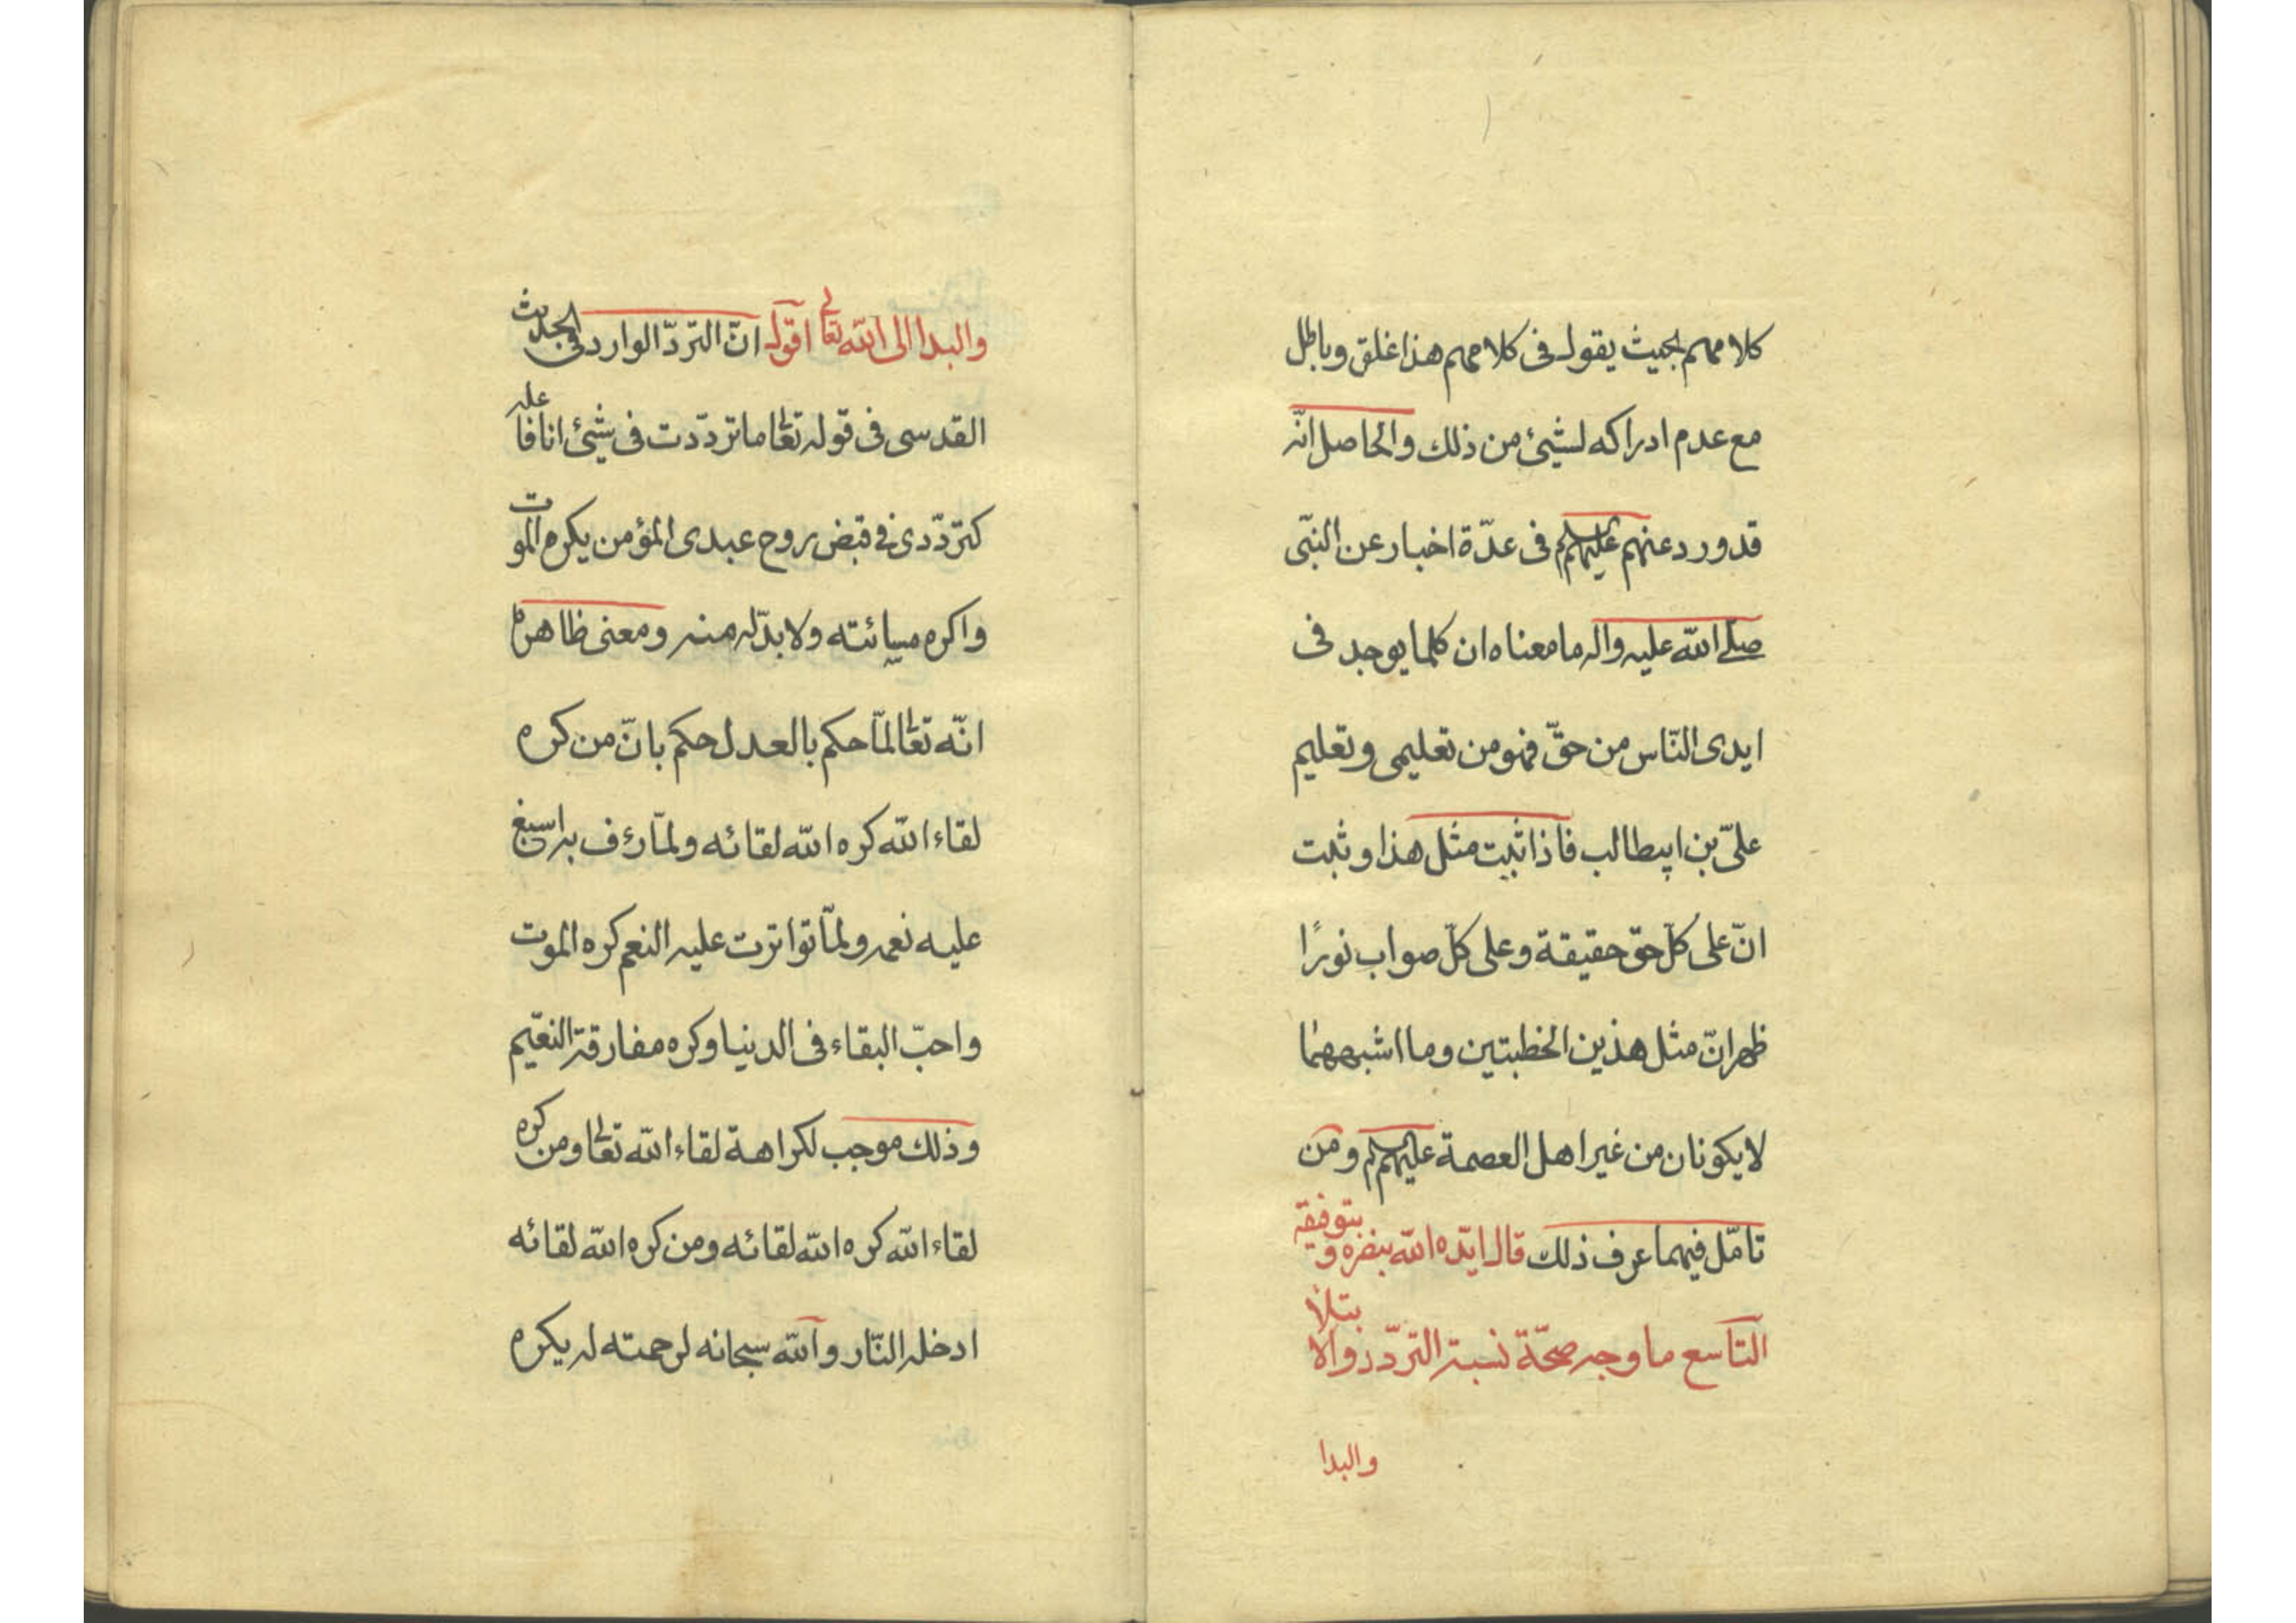 كلامهم بحيث يقول فى كلامهم هذا غلق وباطل
مع عدم ادراكه لشيئ من ذلك والحاصل انّه
قد ورد عنهم عليهم فى عدّة اخبار عن النبّى
صلى الله عليه واله ما معناه ان كلما يوجد فى
ايدى النّاس من حقّ فهو من تعليمى وتعليم
علىّ بن ابيطالب فاذا ثبت مثل هذا وثبت
انّ على كلّ حق حقيقة وعلى كلّ صواب نورًا
ظهر انّ مثل هذين الخطبتين وما اشبههما
لا يكونان من غير اهل العصمة عليهم ومن
تامّل فيهما عرف ذلك قال ايّده الله بنصره و بتوفيقه
التاسع ما وجه صحّة نسبة التردّد والابتلا
والبدا
والبدا الى الله تعالى اقول انّ التردّ الوارد فى الحديث
القدسى فى قوله تعالى ما تردّدت فى شيئ انا فاعله
كتردّدى فى قبض روح عبدى المؤمن يكره الموت
واكره مسائته ولا بدّ له منه ومعنى ظاهره
انّه تعالى لمّا حكم بالعدل حكم بانّ من كره
لقاء الله كره الله لقائه ولمّا رؤف به اسبغ
عليه نعمه ولمّا تواترت عليه النعم كره الموت
واحبّ البقاء فى الدنيا وكره مفارقة النعّيم
وذلك موجب لكراهة لقاء الله تعالى ومن كره
لقاء الله كره الله لقائه ومن كره الله لقائه
ادخله النّار والله سبحانه لرحمته له يكره